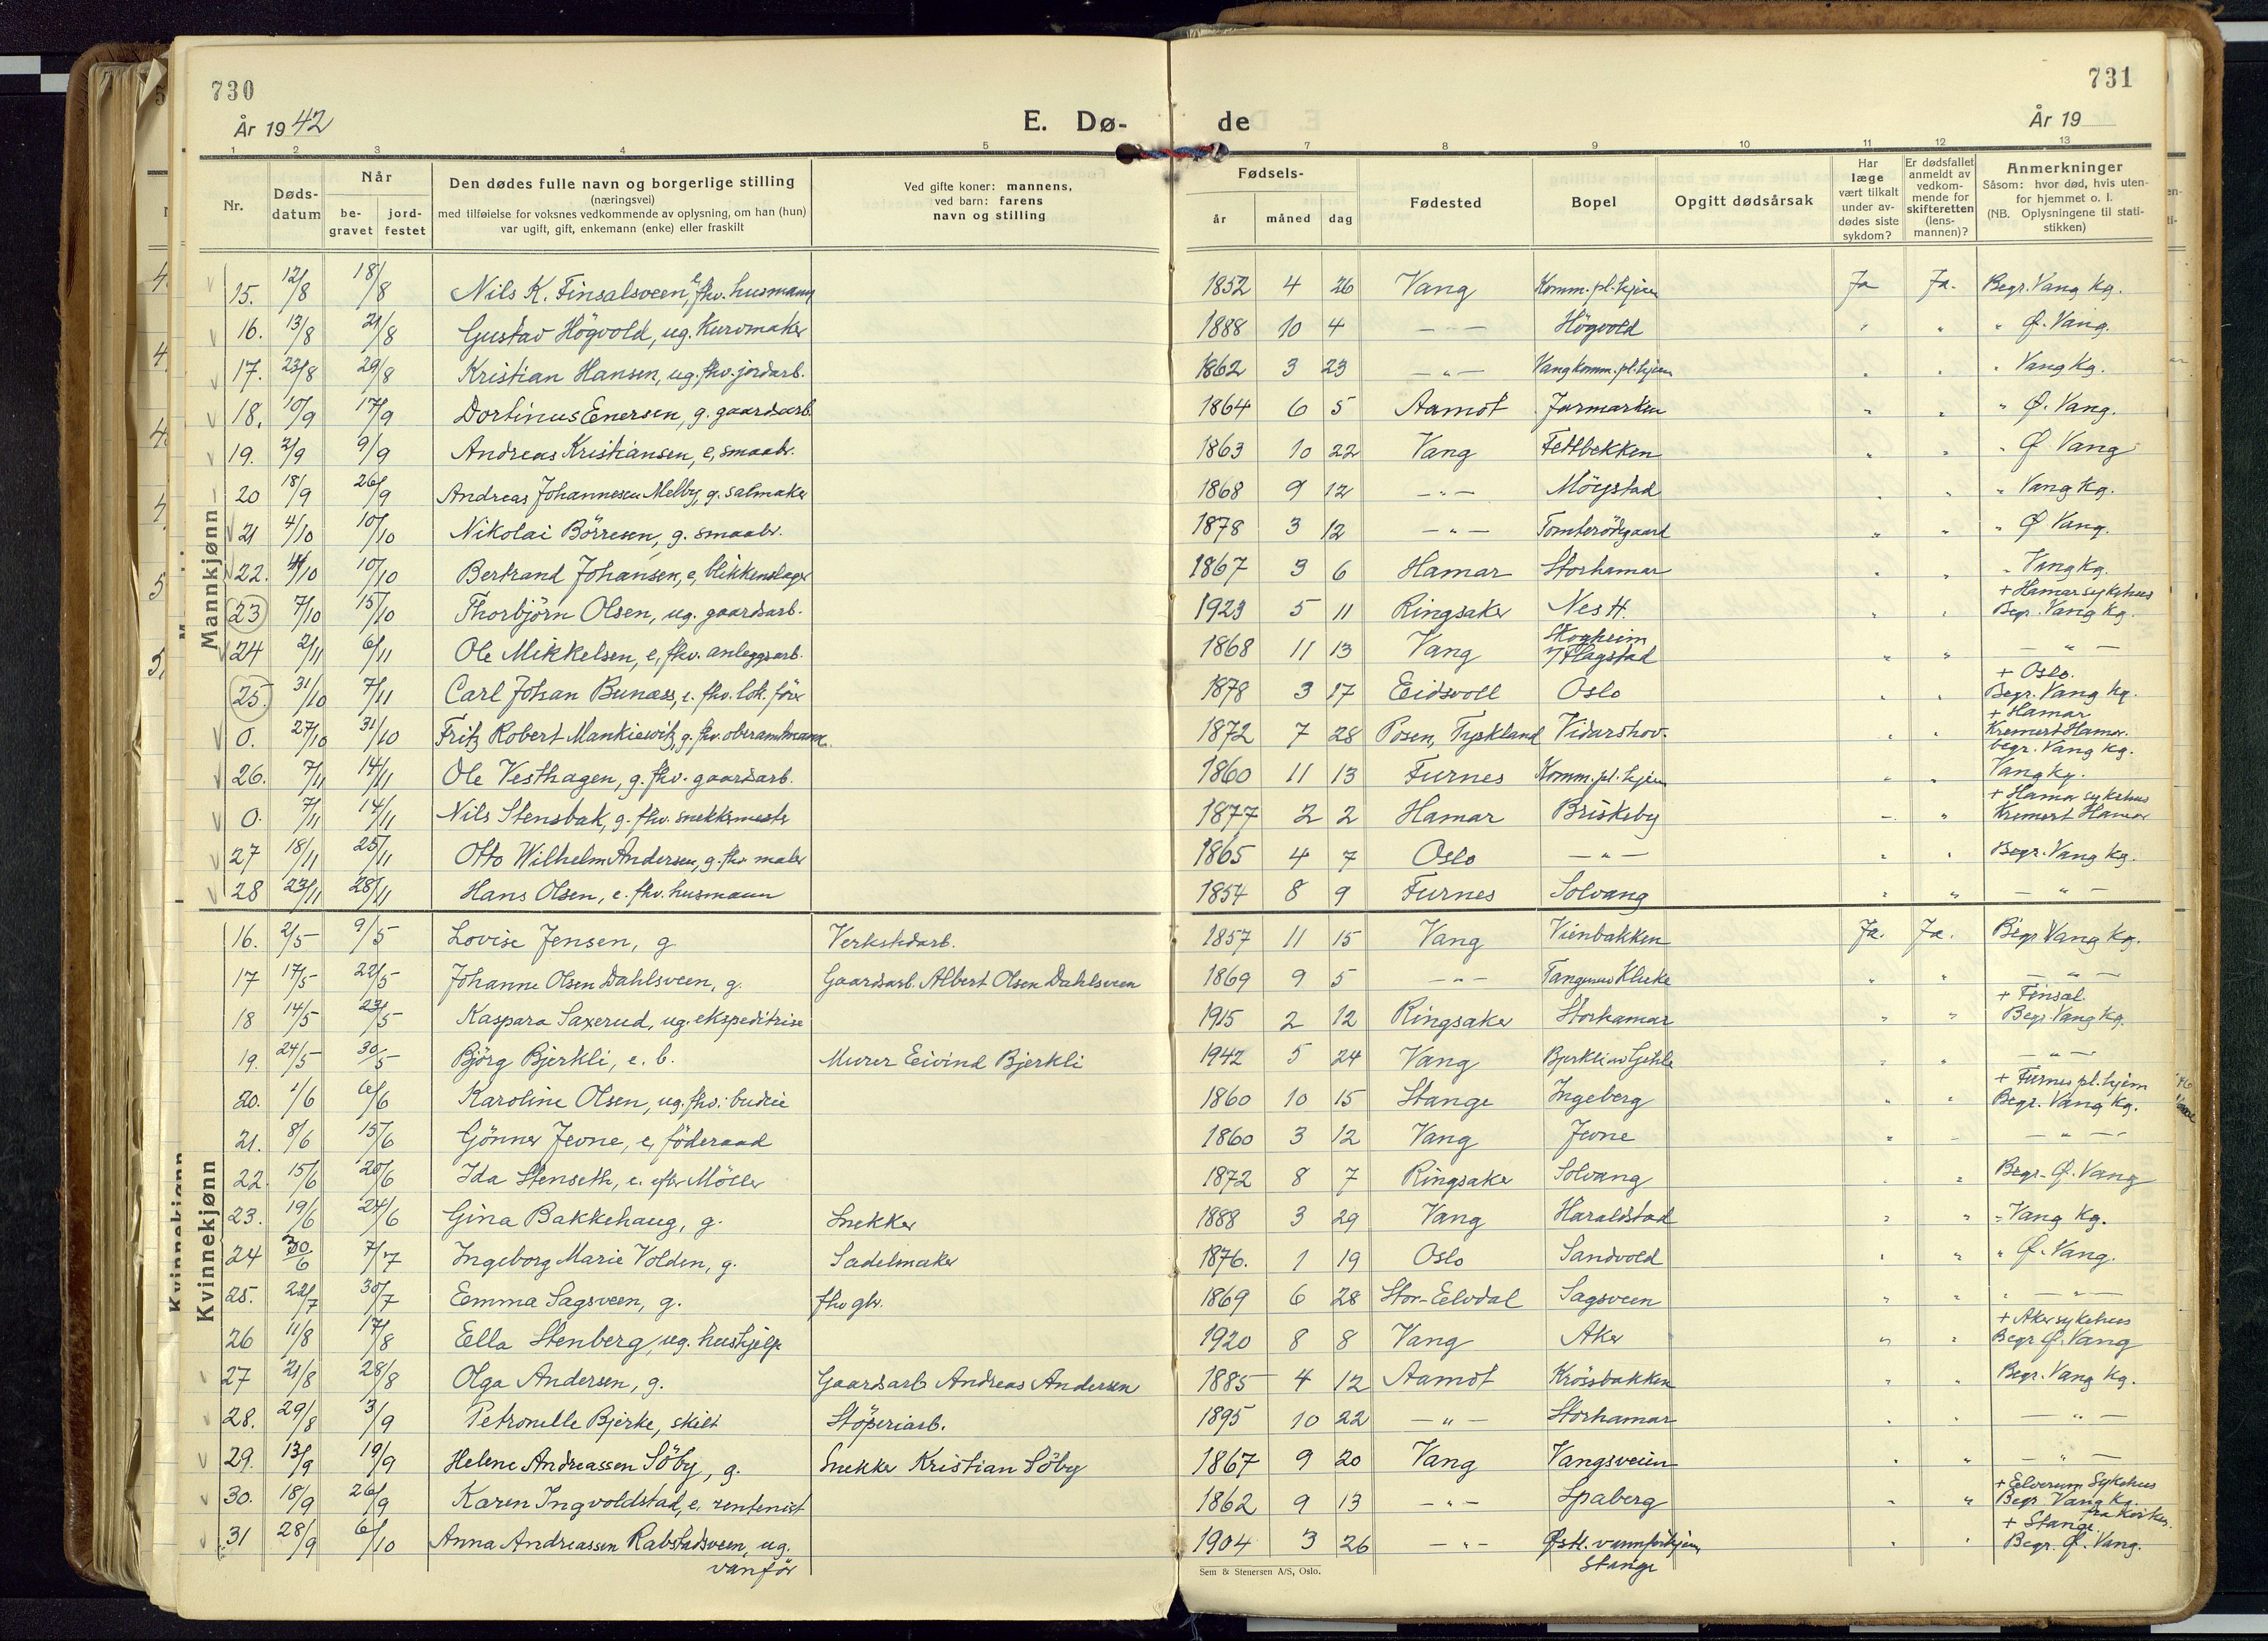 730
731
År 1942
E. Dø-
de
År 19
1 2 3 4 5 7 8 9 10 11 12 13
Nr.
Døds-
datum
Når
be-
gravet
jord-
festet
Den dødes fulle navn og borgerlige stilling
(næringsvei)
med tilføielse for voksnes vedkommende av oplysning, om han (hun)
var ugift, gift, enkemann (enke) eller fraskilt
Ved gifte koner: mannens,
ved barn: farens
navn og stilling
Fødsels-
år
måned
dag
Fødested
Bopel
Opgitt dødsårsak
Har
læge
vært tilkalt
under av-
dødes siste
sykdom?
Er dødsfallet
anmeldt av
vedkom-
mende for
skifteretten
(lens-
mannen)?
Anmerkninger
Såsom: hvor død, hvis uten-
for hjemmet o. l.
(NB. Oplysningene til stati-
stikken)
Mannkjønn
15. 12/8 18/8 Nils K. Finsalsveen, e. fhv. husmann 1852 4 26 Vang Komm. pl. hjem Ja Ja. Begr. Vang Kg.
16. 13/8 21/8 Gustav Högvold, ug. Kurvmaker 1888 10 4 — — Högvold " " " Ø. Vang.
17. 23/8 29/8 Kristian Hansen, ug. fhv. jordarb. 1862 3 23 — " — Vang komm. pl. hjem " " " Vang Kg.
18. 10/9 17/9 Dortinus Enersen, g. gaardsarb. 1864 6 5 Aamot Jarmarken " " " Ø. Vang.
19. 2/9 9/9 Andreas Kristiansen, e, smaabr. 1863 10 22 Vang Fettbekken " " " Ø Vang
20 18/9 26/9 Andreas Johannesen Melby, g. salmaker 1868 9 12 — " — Mögstad " " " Vang Kg.
21 4/10 10/10 Nikolai Börresen, g. smaabr. 1878 3 12 — " — Tomterödgaard " " " Ø Vang.
22. 4/10 10/10 Bertrand Johansen, e, blikkenslager 1867 3 6 Hamar Storhamar " " " Vang Kg.
+ Hamar sykehus
23 7/10 15/10 Thorbjörn Olsen, ug. gaardsarb. 1923 5 11 Ringsaker Nes H. " " Begr. Vang Kg.
24 2/11 6/11 Ole Mikkelsen, e, fhv. anleggsarb. 1868 11 13 Vang Skogheim
/Flagstad " " — " —
+ Oslo.
25. 31/10 7/11 Carl Johan Bunæss, e. fhv. lok. förer 1878 3 17 Eidsvoll Oslo " " Begr. Vang Kg.
+ Hamar
0. 27/10 31/10 Fritz Robert Mankiewitz, g. fhv. oberamtmann. 1872 7 28 Posen, Tyskland Vidarshov. " " Kremert Hamar.
begr. Vang Kg.
26. 7/11 14/11 Ole Vesthagen, g. fhv. gaardsarb. 1860 11 13 Furnes Komm. pl. hjem " " Vang Kg.
+ Hamar sykehus
0. 7/11 14/11 Nils Stensbak, g. fhv. snekkermester 1877 2 2 Hamar Briskeby " " Kremert Hamar
27 18/11 25/11 Otto Wilhelm Andersen, g. fhv maler 1865 4 7 Oslo — " — " " Begr. Vang Kg.
28 23/11 28/11 Hans Olsen, e. fhv. husmann 1854 8 9 Furnes Solvang " " — " —
Kvinnekjønn
16. 2/5 9/5 Lovise Jensen, g Verkstedarb. 1857 11 15 Vang Vienbakken Ja. Ja. Begr Vang Kg.
17 17/5 22/5 Johanne Olsen Dahlsveen, g. Gaardsarb. Albert Olsen Dahlsveen 1869 9 5 — " — " " — " —
+ Finsal.
18 14/5 23/5 Kaspara Saxerud, ug. ekspeditrise 1915 2 12 Ringsaker Storhamar " " Begr. Vang Kg.
19. 24/5 30/5 Björg Bjerkli, e. b. Murer Eivind Bjerkli 1942 5 24 Vang " " — " —
+ Furnes pl. hjem
20. 1/6 6/6 Karoline Olsen, ug. fhv. budeie 1860 10 15 Stange Ingeberg " " Begr. Vang Kg.
21. 8/6 15/6 Gönner Jevne, e, föderaad 1860 3 12 Vang Jevne " " — " —
22. 15/6 20/6 Ida Stenseth, e. efter Möller 1872 8 7 Ringsaker Solvang " " Begr. Ø. Vang
23. 19/6 24/6 Gina Bakkehaug, g. Snekker 1888 3 29 Vang Haraldstad " " " Vang Kg.
24 30/6 7/7 Ingeborg Marie Volden, g. Sadelmaker 1876. 1 19 Oslo Sandvold " " " Ø. Vang.
25. 22/7 30/7 Emma Sagsveen, g. fhv gbr. 1869 6 28 Stor-Elvdal Sagsveen " " " — " —
+ Aker sykehus
26 11/8 17/8 Ella Stenberg, ug. hushjelp 1920 8 8 Vang Aker " " Begr Ø. Vang
27 21/8 28/8 Olga Andersen, g. Gaardsarb Andreas Andersen 1885 4 12 Aamot Krössbakken " " Begr. Vang Kg.
28. 29/8 3/9 Petronelle Bjerke, skilt Stöperiarb. 1895 10 22 — " — Storhamar " " — " —
29. 13/9 19/9 Helene Andreassen Söby, g. Snekker Kristian Söby 1867 9 20 Vang Vangsveien " " — " —
+ Elverum Sykehus
30. 18/9 26/9 Karen Ingvoldstad, e. rentenist 1862 9 13 — " — Spaberg " " Begr Vang Kg.
fra kirken.
+ Stange.
31 28/9 6/10 Anna Andreassen Rabstadsveen, ug.
vanför 1904 3 26 — " — Østl. vanförehjem
Stange " " Begr. Ø. Vang.
Sem & Stenersen A/S, Oslo.